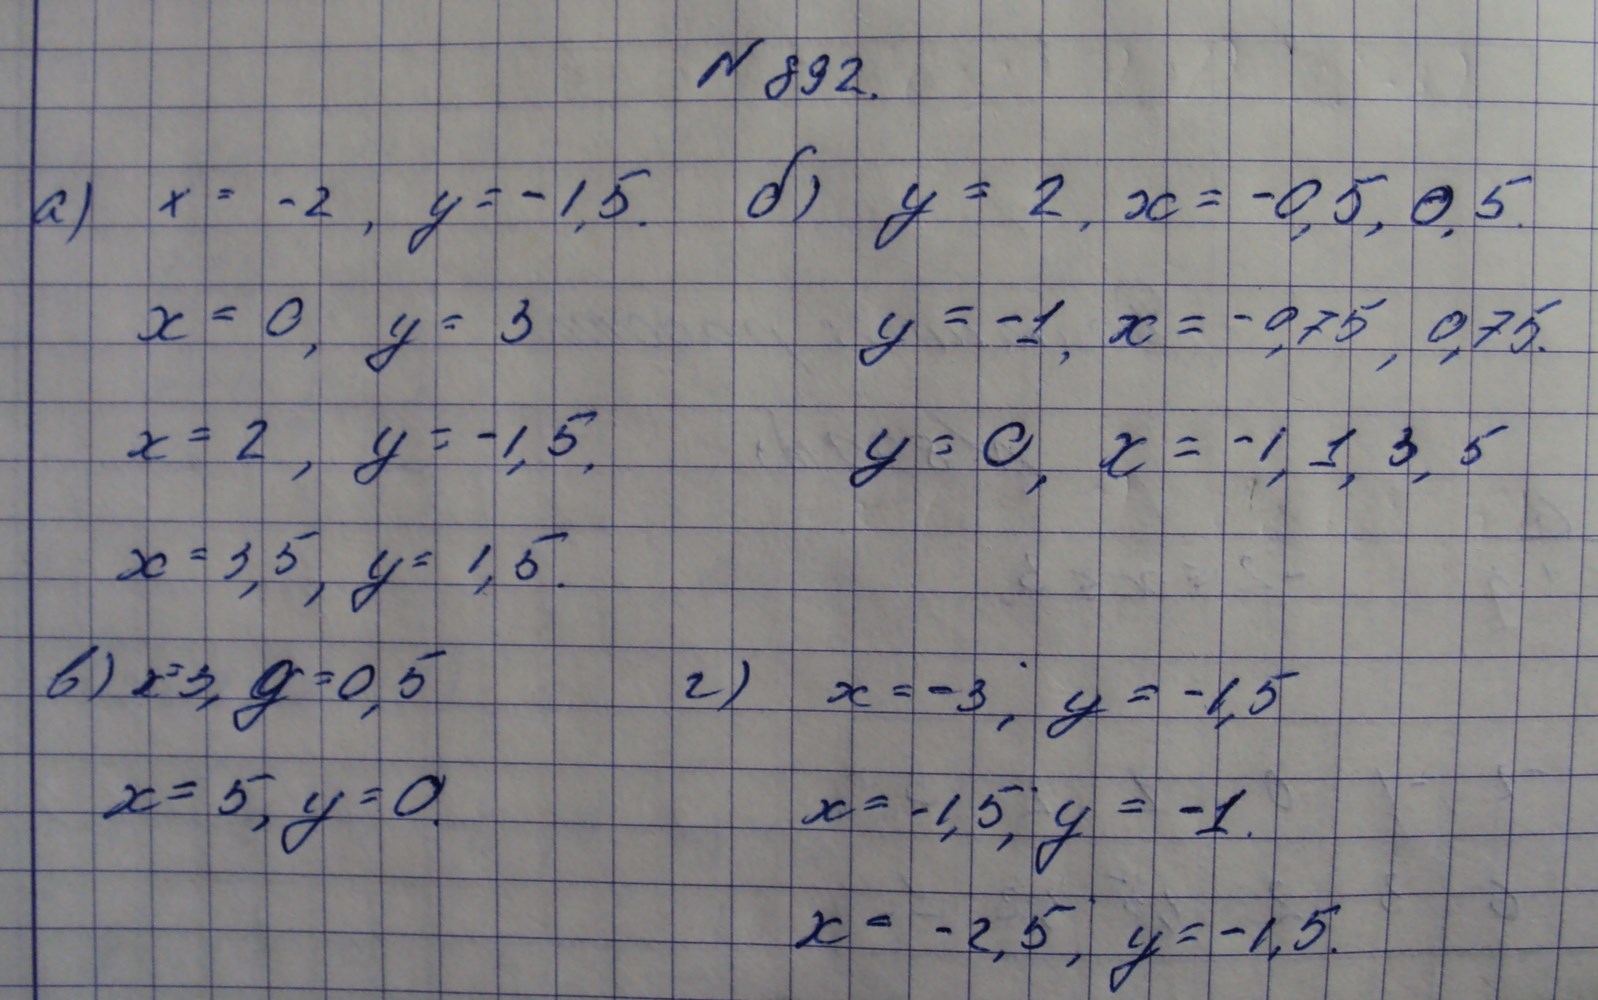 № 892.
а) x = -2, y = -1,5. б) y = 2, x = -0,5, 0,5.
x = 0, y = 3 y = -1, x = -0,75, 0,75.
x = 2, y = -1,5. y = 0, x = -1, 1, 3, 5
x = 3,5, y = 1,5.
в) x=3, y=0,5 г) x = -3, y = -1,5
x = 5, y = 0. x = -1,5, y = -1.
x = -2,5, y = -1,5.